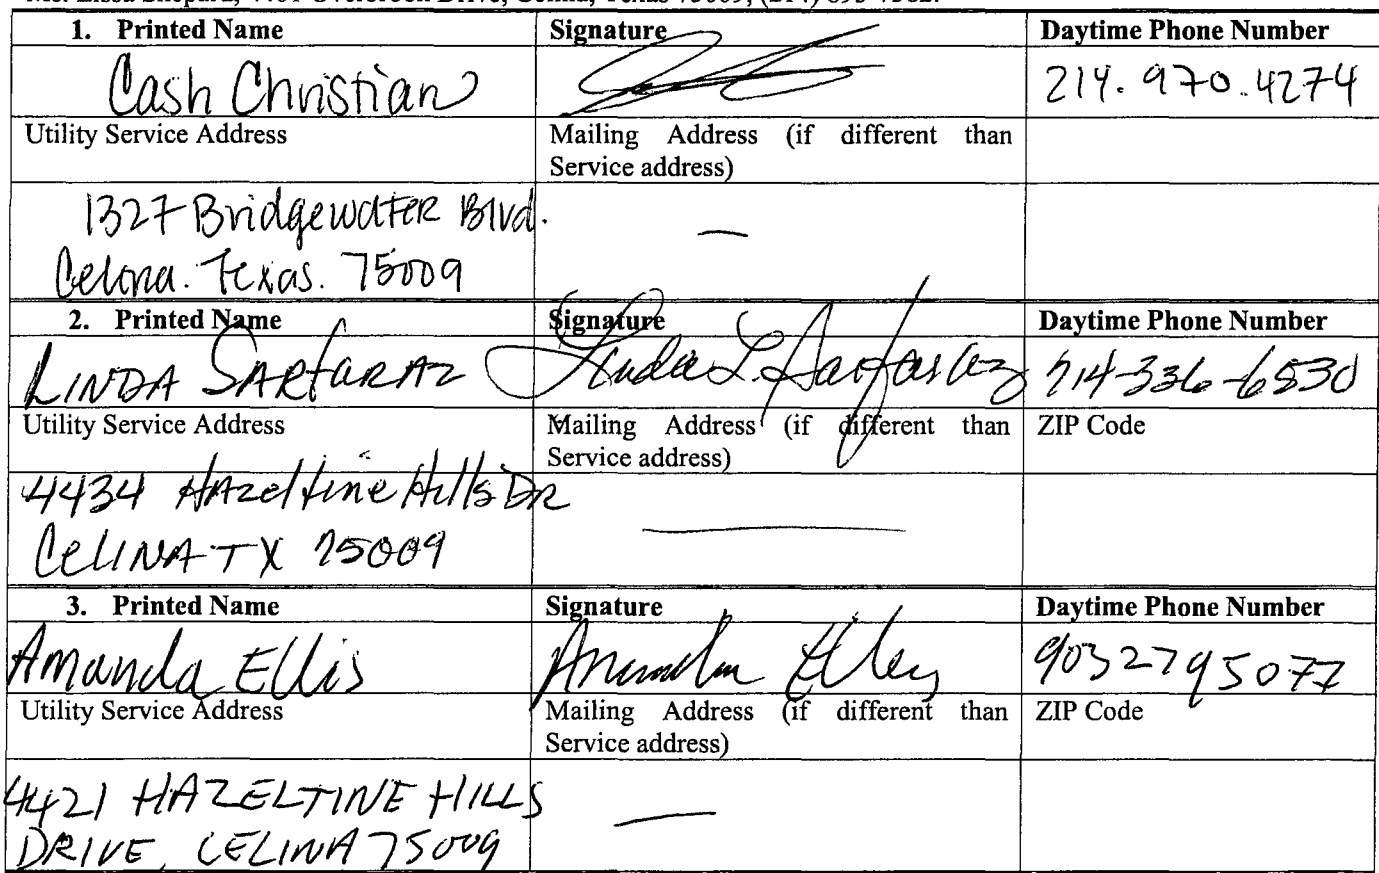 1. Printed Name Signature Daytime Phone Number
Cash Christian 214.970.4274
Utility Service Address Mailing Address (if different than
Service address)
1327 Bridgewater Blvd. —
Celina. Texas. 75009
2. Printed Name Signature Daytime Phone Number
LINDA SARFARAZ Linda L. Sarfaraz 714-336-6530
Utility Service Address Mailing Address (if different than ZIP Code
Service address)
4434 Hazeltine Hills DR
CELINA TX 75009 —
3. Printed Name Signature Daytime Phone Number
Amanda Ellis Amanda Ellis 9032795077
Utility Service Address Mailing Address (if different than ZIP Code
Service address)
4421 HAZELTINE HILLS —
DRIVE, CELINA 75009